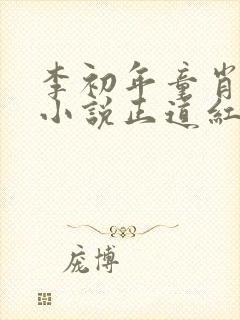 李初年童肖
小说正道红
庞博